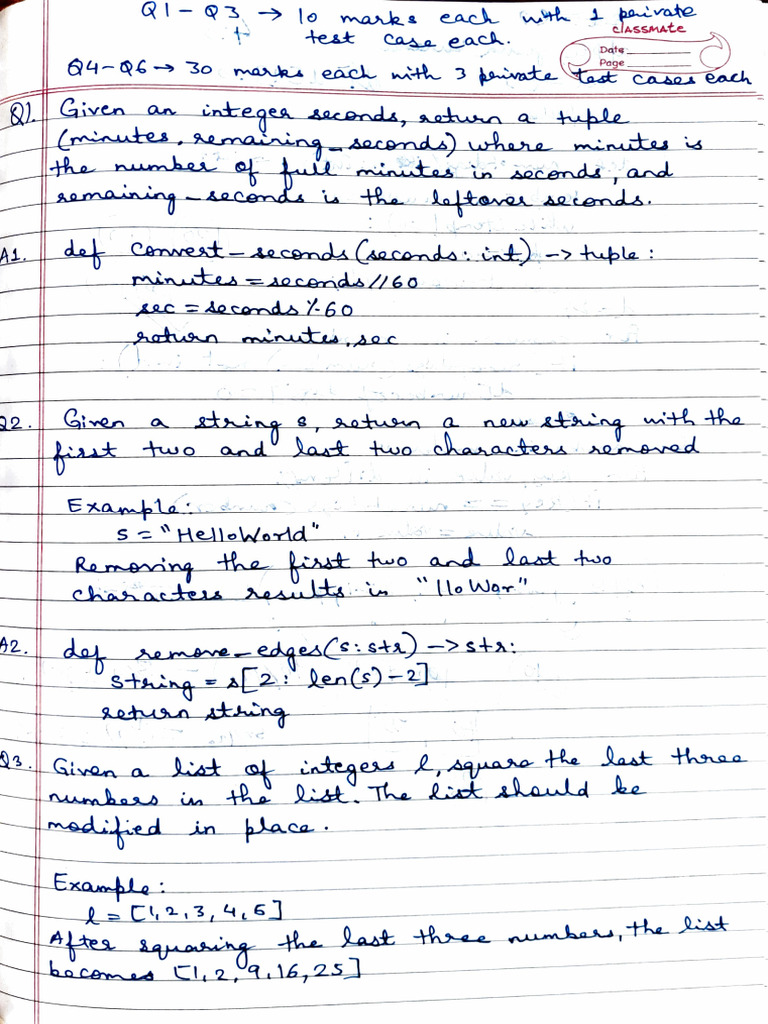 Q1 - Q3 → 10 marks each with 1 private
test case each.
classmate
Date
Page
Q4-Q6 → 30 marks each with 3 private test cases each
Q1. Given an integer seconds, return a tuple
(minutes, remaining_seconds) where minutes is
the number of full minutes in seconds, and
remaining-seconds is the leftover seconds.
A1. def convert-seconds(seconds: int) -> tuple:
minutes = seconds//60
sec = seconds%60
return minutes, sec
Q2. Given a string s, return a new string with the
first two and last two characters removed
Example:
s = "HelloWorld"
Removing the first two and last two
characters results in "lloWor"
A2. def remove_edges(s:str) -> str:
string = s[2: len(s)-2]
return string
Q3. Given a list of integers l, square the last three
numbers in the list. The list should be
modified in place.
Example:
l = [1,2,3,4,5]
After squaring the last three numbers, the list
becomes [1,2,9,16,25]